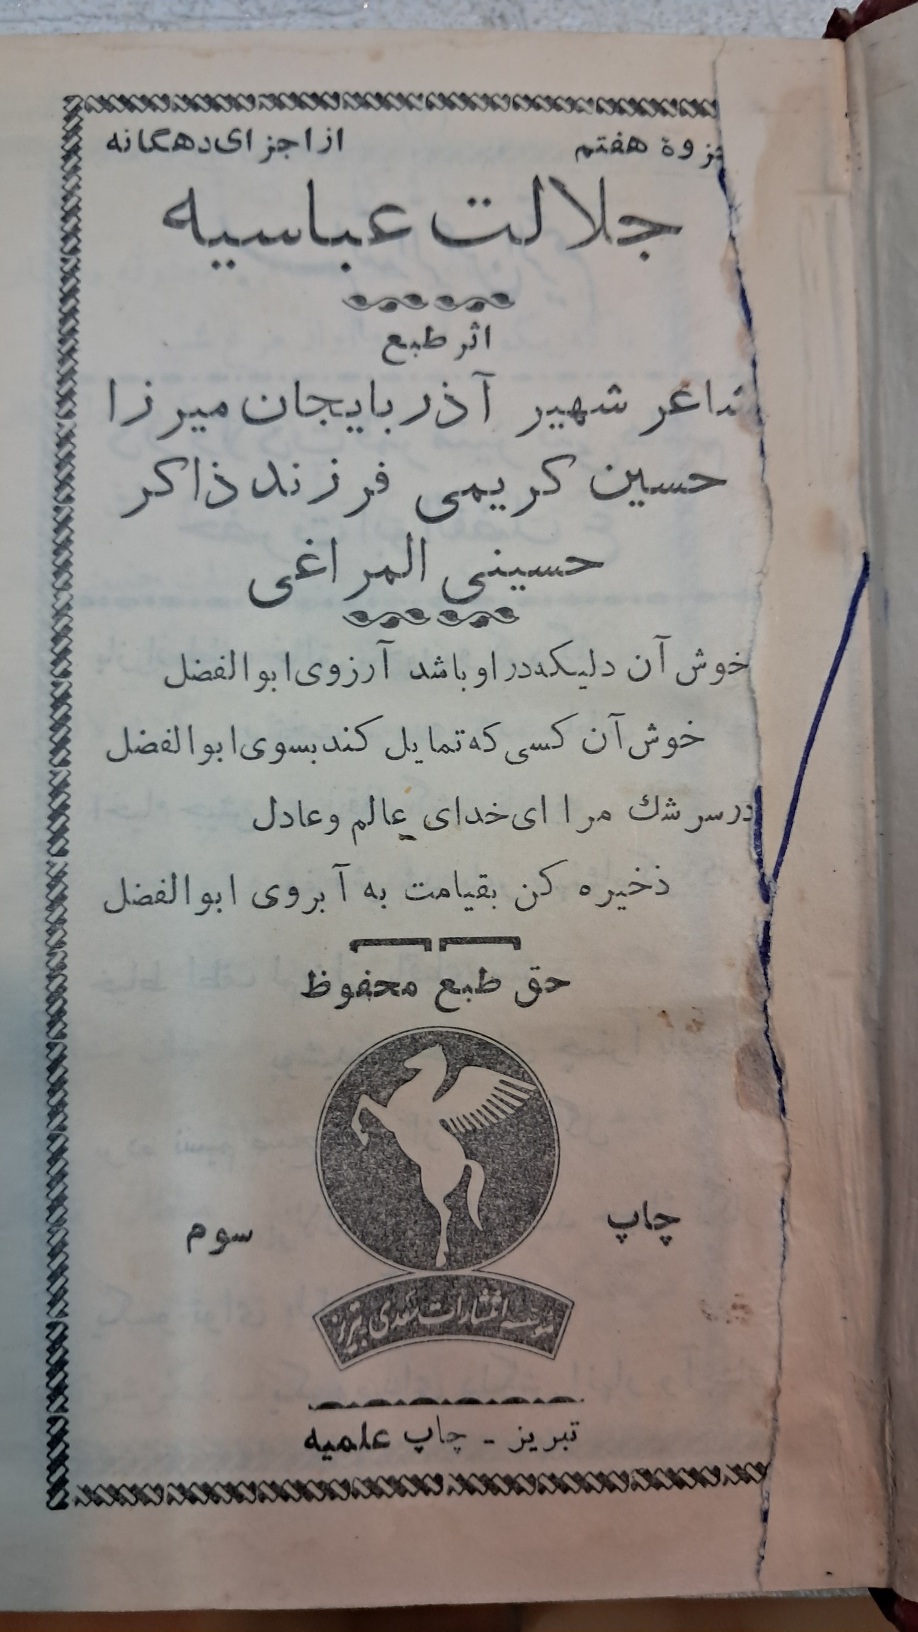 جزوهٔ هفتم از اجزای دهگانه
جلالت عباسیه
اثر طبع
شاعر شهیر آذربایجان میرزا
حسین کریمی فرزند ذاکر
حسینی المراغی
خوش آن دلیکه در او باشد آرزوی ابوالفضل
خوش آن کسی که تمایل کند بسوی ابوالفضل
در سرشك مرا ای خدای عالم و عادل
ذخیره کن بقیامت به آبروی ابوالفضل
حق طبع محفوظ
چاپ سوم
موسسه انتشارات سعدی تبریز
تبریز - چاپ علمیه